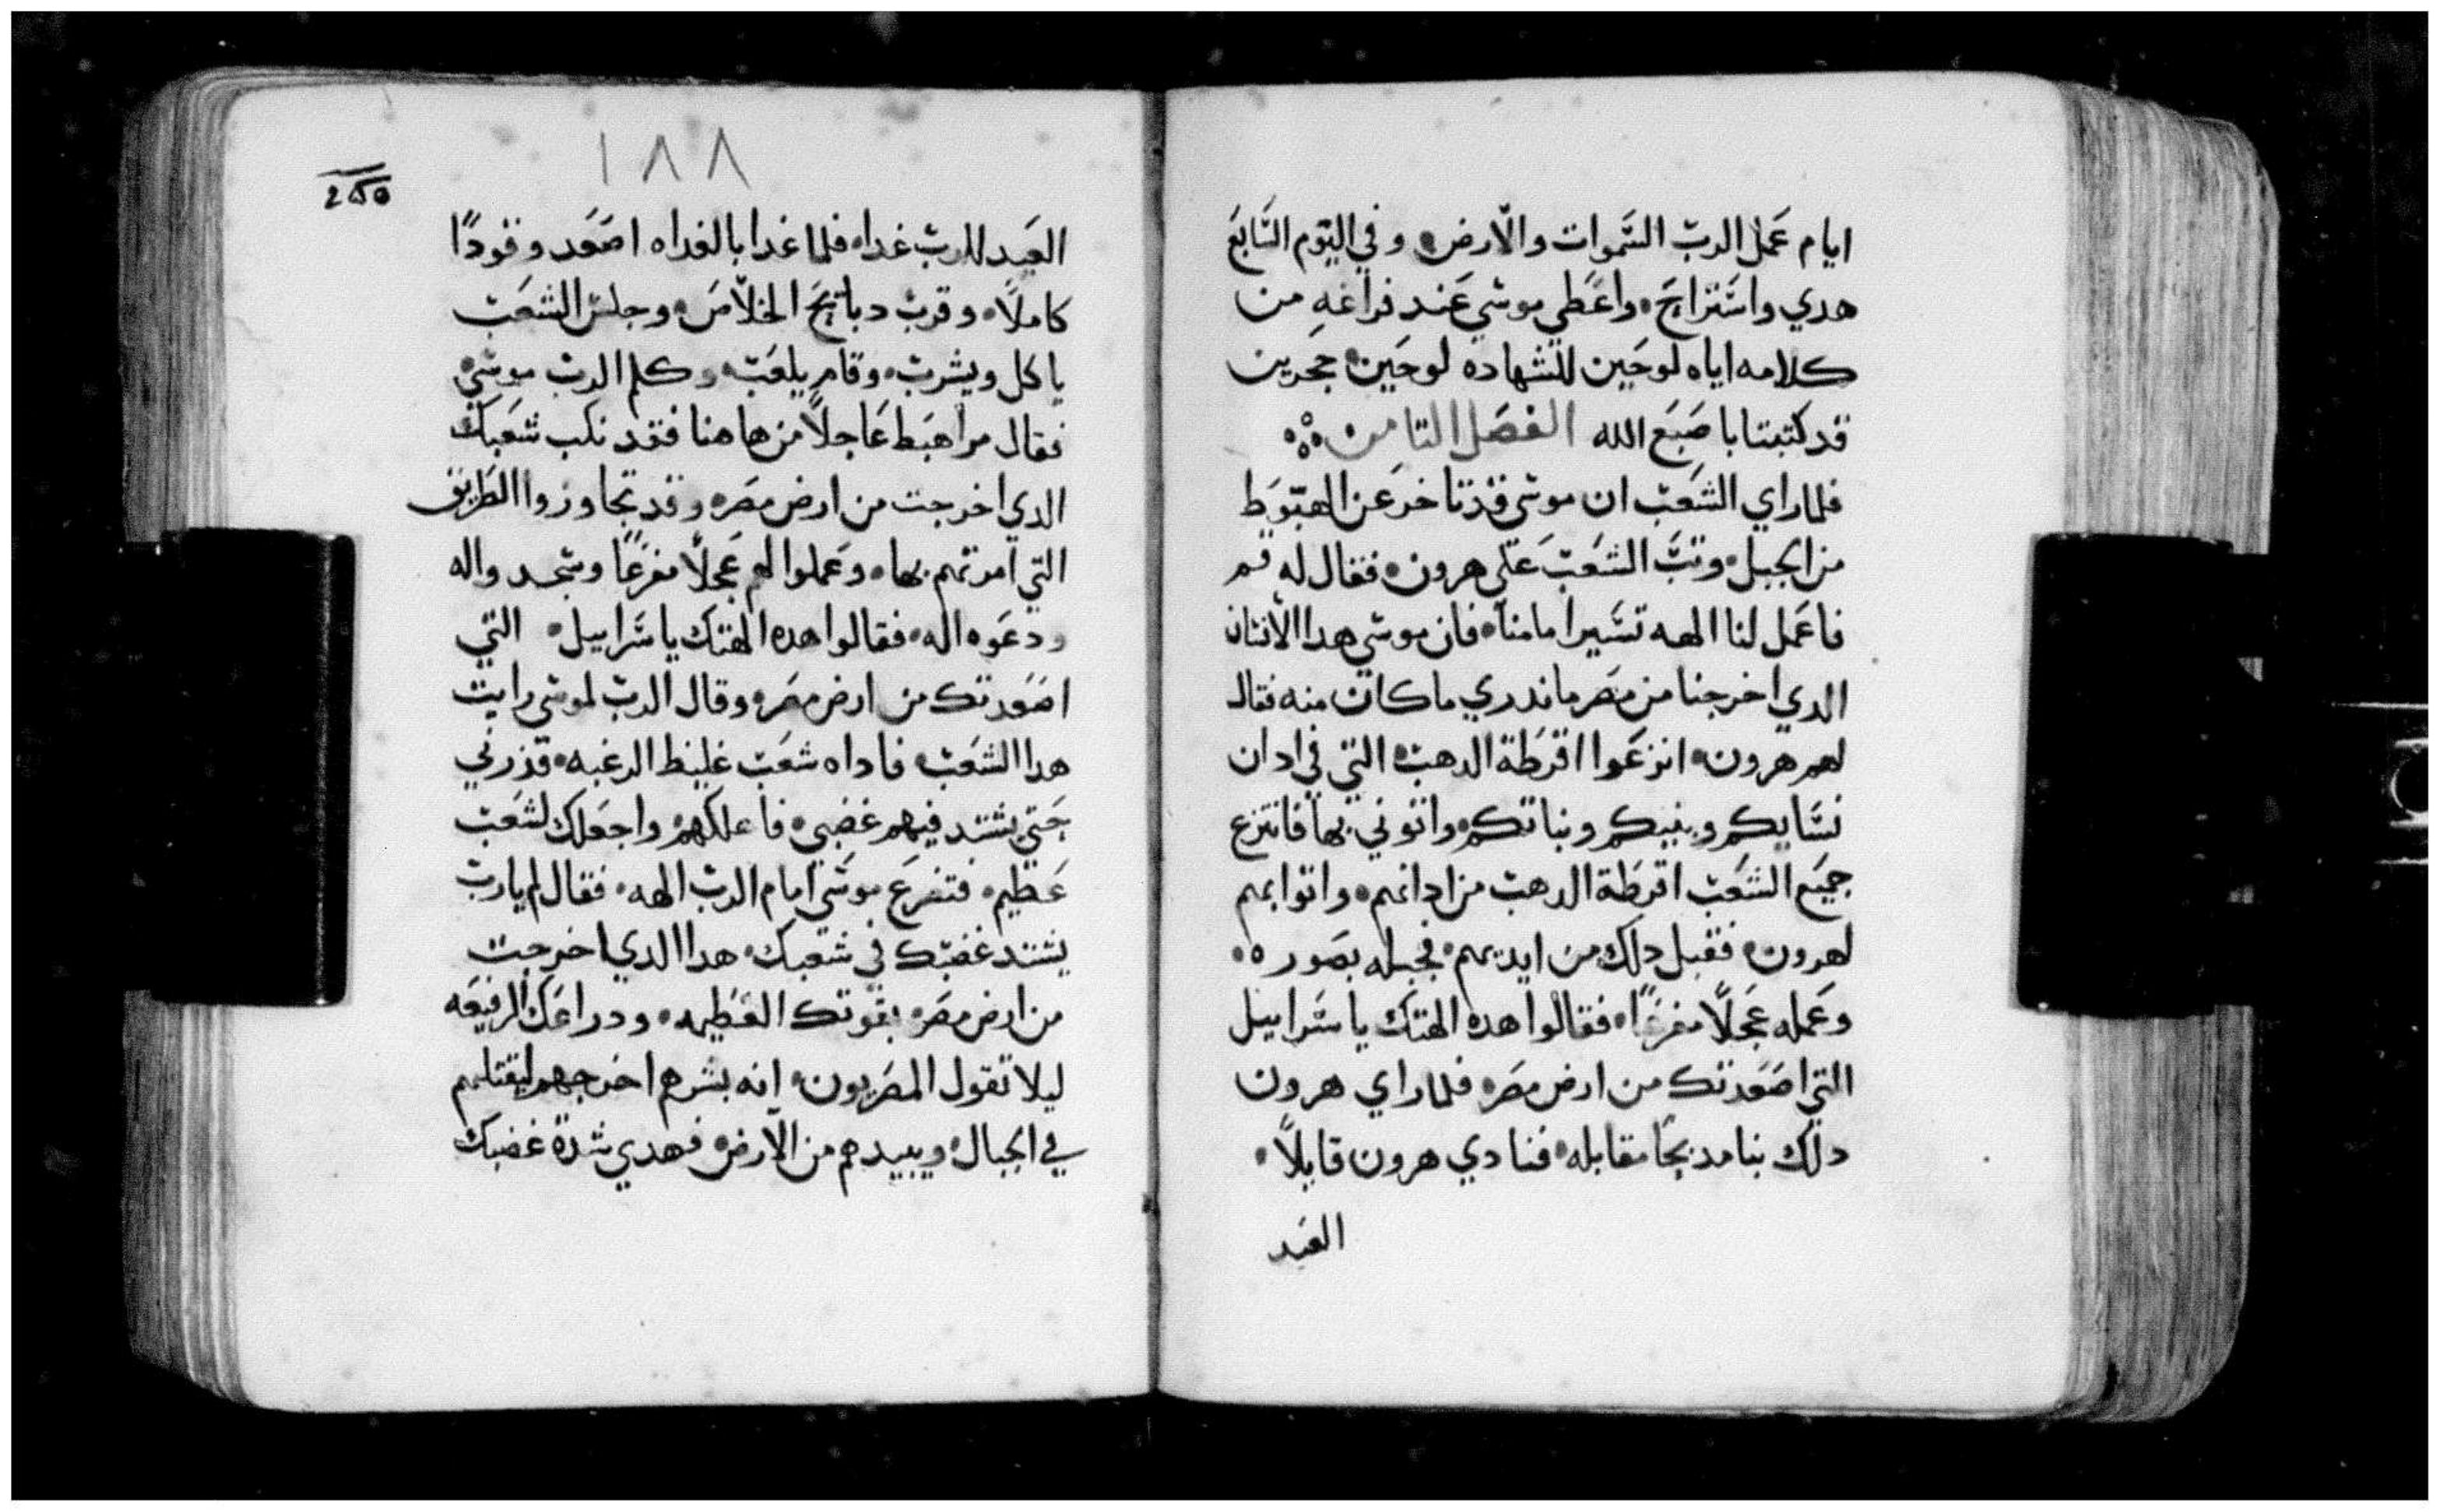 ايام عمل الرب السموات والارض وفي اليوم السابع
هدي واستراح واعطي موسي عند فراغه من
كلامه اياه لوحين للشهاده لوحين حجرين
قد كتبتا باصبع الله الفصل التامن
فلما راي الشعب ان موسي قد تاخر عن الهبوط
من الجبل وتب الشعب علي هرون فقال له قم
فاعمل لنا الهه تسير امامنا فان موسي هدا الانسان
الدي اخرجنا من مصر ما ندري ما كان منه فقال
لهم هرون انزعوا اقرطة الدهب التي في ادان
نسايكم وبنيكم وبناتكم واتوني بها فانتزع
جميع الشعب اقرطة الدهب من ادانهم واتوا بهم
لهرون فقبل دلك من ايديهم فجبله بصوره
وعمله عجلاً مفرغاً فقالوا هده الهتك ياسراييل
التي اصعدتك من ارض مصر فلما راي هرون
دلك بنا مدبحاً مقابله فنادي هرون قايلاً
العيد
١٨٨
العيد للرب غدا فلما غدا بالغداه اصعد وقوداً
كاملاً وقرب دبايح الخلاص وجلس الشعب
ياكل ويشرب وقام يلعب وكلم الرب موسي
فقال مر اهبط عاجلاً من هاهنا فقد نكب شعبك
الدي اخرجت من ارض مصر وقد تجاوزوا الطريق
التي امرتهم بها وعملوا لهم عجلاً مفرغاً وسجدواله
ودعوه اله فقالوا هده الهتك ياسراييل التي
اصعدتك من ارض مصر وقال الرب لموسي رايت
هدا الشعب فاداه شعب غليظ الرغبه فذرني
حتي يشتد فيهم غضبي فاهلكهم واجعلك لشعب
عظيم فتضرع موسي امام الرب الهه فقال لم يارب
يشتد غضبك في شعبك هدا الدي اخرجت
من ارض مصر بقوتك العظيمه ودراعك الرفيعه
ليلا تقول المصريون انه بشرهم اخرجهم ليقتلهم
في الجبال ويبيدهم من الارض فهدي شدة غضبك